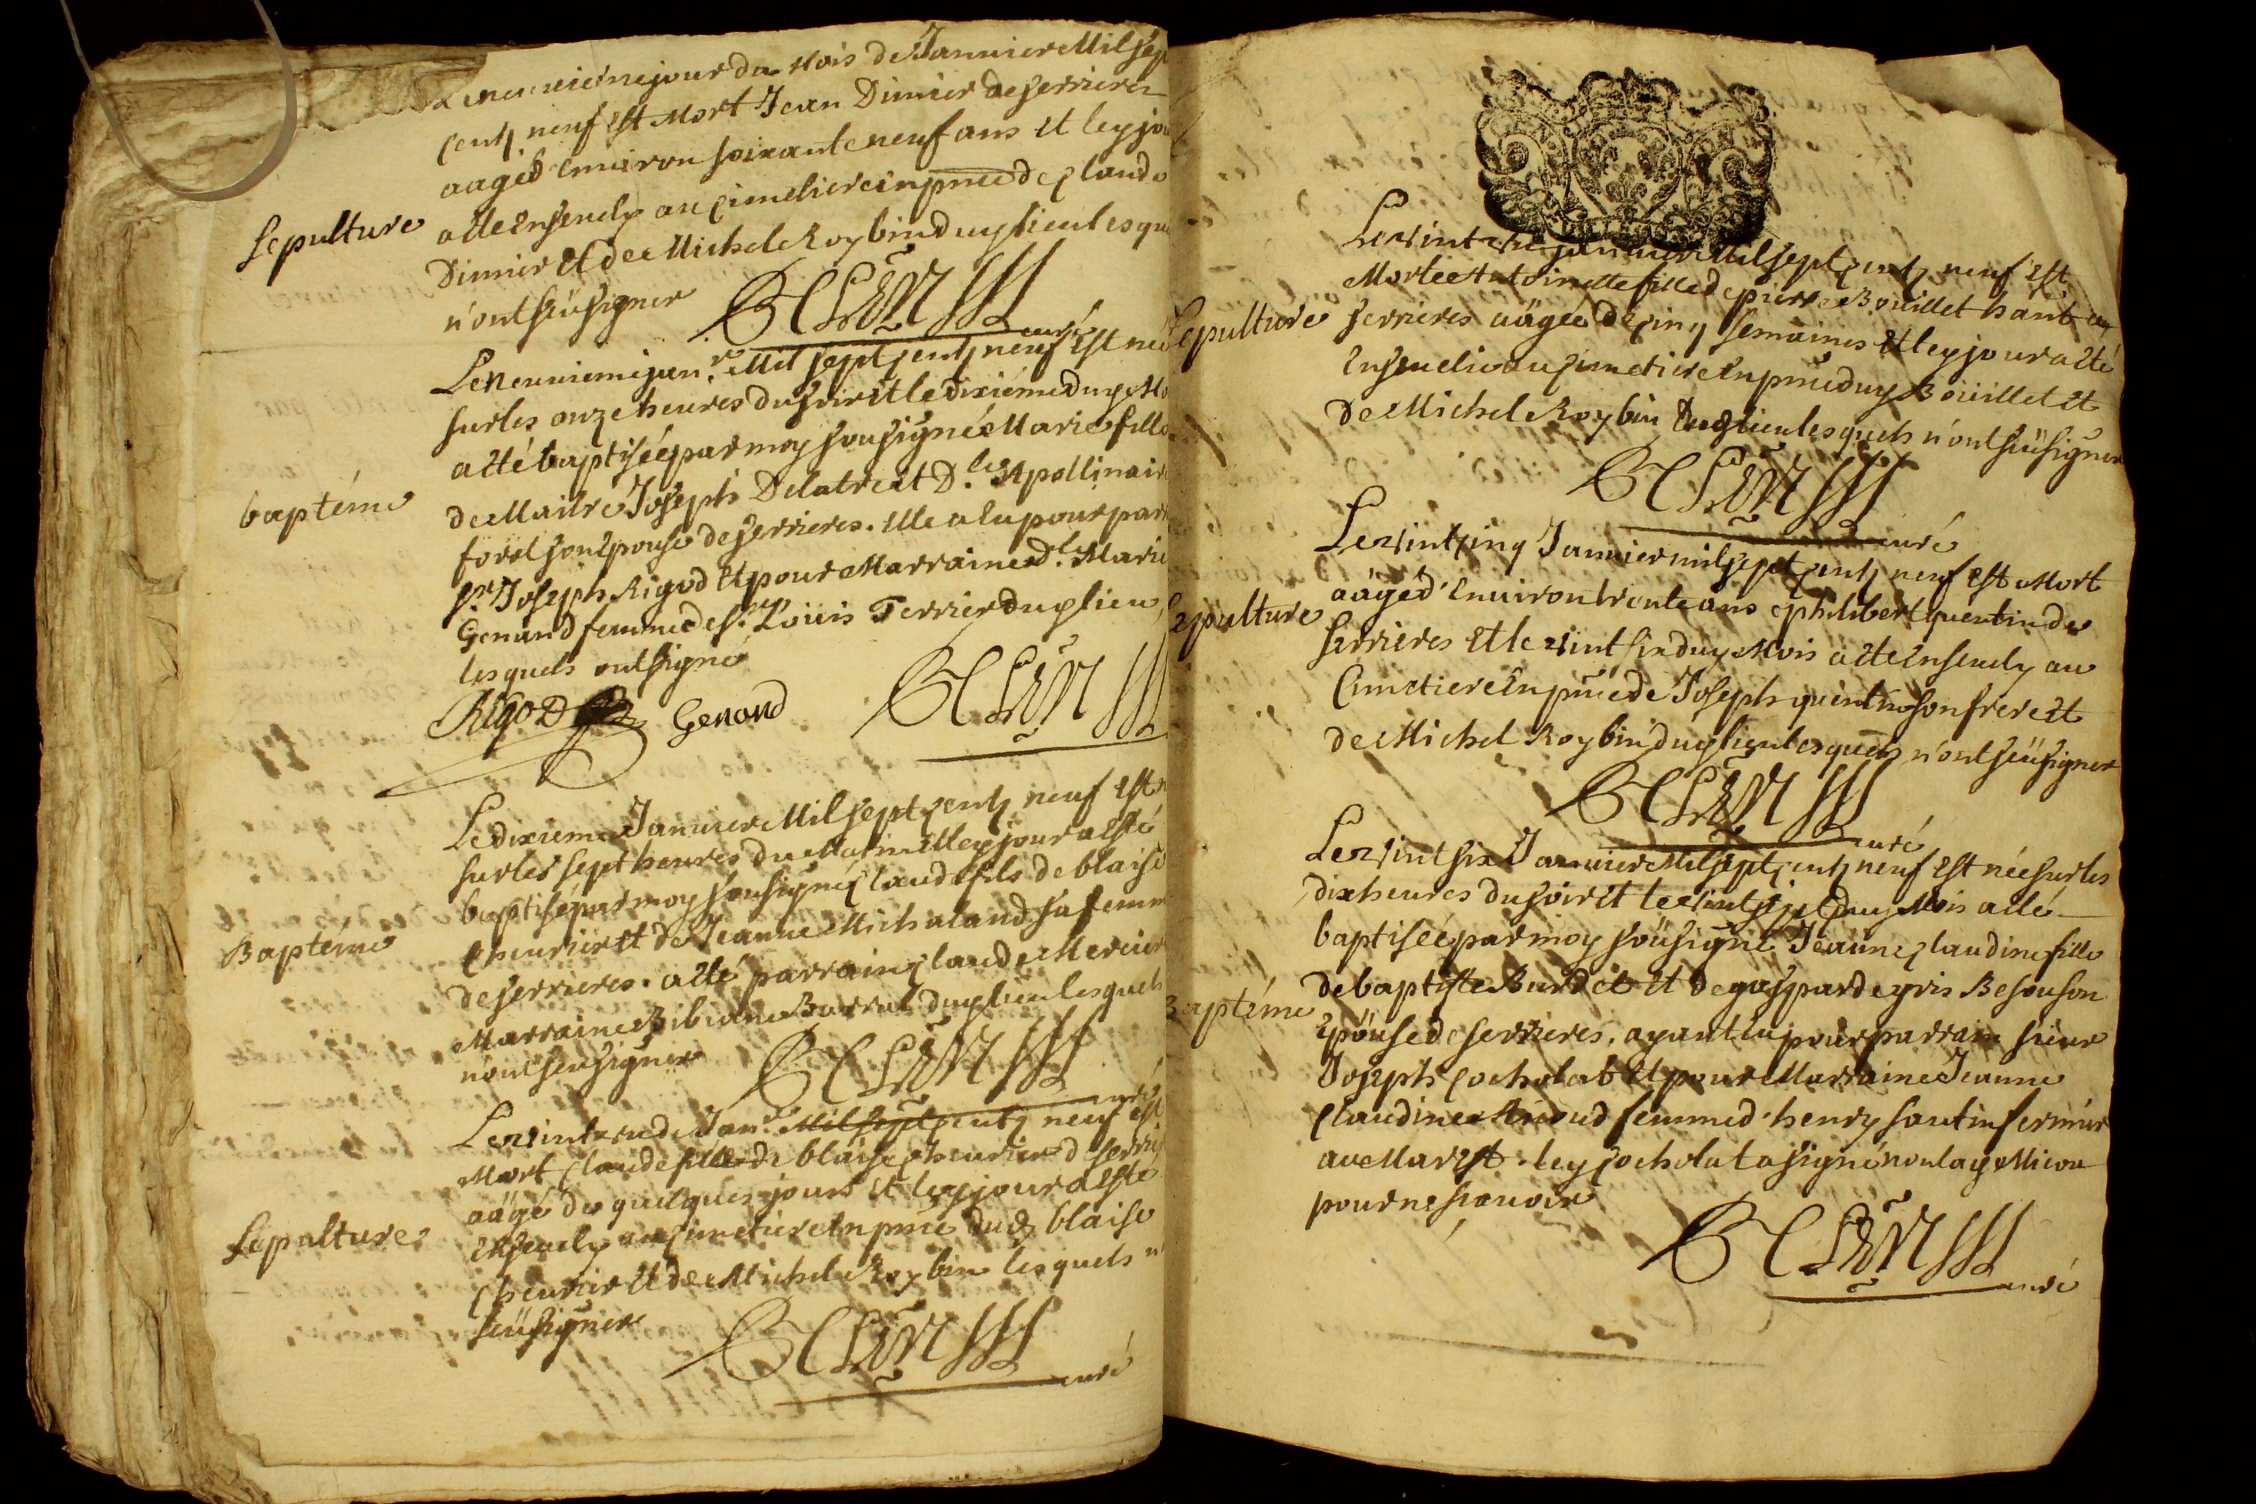 Le neuvieme jour du Mois de Janvier Mil sept
cents neuf est Mort Jean Dimier de serrieres
aagé d'environ soixante neuf ans et le ssd jour
Sepulture
a esté enseuely au cimetiere en pnce de claude
Dimier et de Michel Roybin dud lieu lesquels
n'ont sceu signer
curé
Le neuvieme janr Mil sept cents neuf est née
sur les onze heures du soir et le dixiéme dud Mois
a esté baptisée par moy sousigné Marie fille
baptéme
de Maitre Joseph Delatre et Dlle Apollinaire
forel son épouse de serrieres. elle a eu pour parrain
sr Joseph Rigod et pour Marraine dlle Marie
Genand femme de sr Loüis Terrier dud lieu,
lesquels ont signé
Rigod Genand
Le dixieme Janvier Mil sept cents neuf est né
sur les sept heures du Matin et led jour a esté
baptisé par moy sousigné claude fils de blaise
Chevrier et de Jeanne Michaland sa femme
Baptéme
de serrieres. a esté parrain claude Mercier
Marraine Bibiane Barral dud lieu lesquels
n'ont sceu signer
curé
Le vint de Janr Mil sept cents neuf est
Mort Claude fils de blaise chevrier de serrieres
aâgé de quelques jours et led jour a esté
Sepulture
enseuely au cimetiere en pnce dud blaise
Chevrier et de Michel Roybin lesquels n'ont
sceü signer
curé
Le vint janvier Mil sept cents neuf est
Morte Antoinette fille de pierre Boüillet hant en
Sepulture
serrieres aâgée de cinq semaines et led jour a esté
Ensevelie au cimetiere en pnce dud Boüillet et
de Michel Roybin dud lieu lesquels n'ont sceü signer
curé
Le vint cinq Janvier mil sept cents neuf est Mort
aâgé d'environ trente ans philibert quentin de
Sepulture
serrieres et le vint six dud Mois a esté enseuely au
Cimetiere en pnce de Joseph quentin son frere et
de Michel Roybin dud lieu lesquels n'ont sceü signer
curé
Le vint six Janvier Mil sept cents neuf est née sur les
dix heures du soir et le vint sept dud Mois a esté
baptisée par moy soûsigné Jeanne claudine fille
de baptiste Burdet et de gasparde yris Besonson
Baptéme
épouse de serrieres, ayant eu pour parrain sieur
Joseph Cocholat et pour Marraine Jeanne
Claudine femme d'henry santin fermier
au Marest. led cocholat a signé non lad
pour ne sçavoir
curé